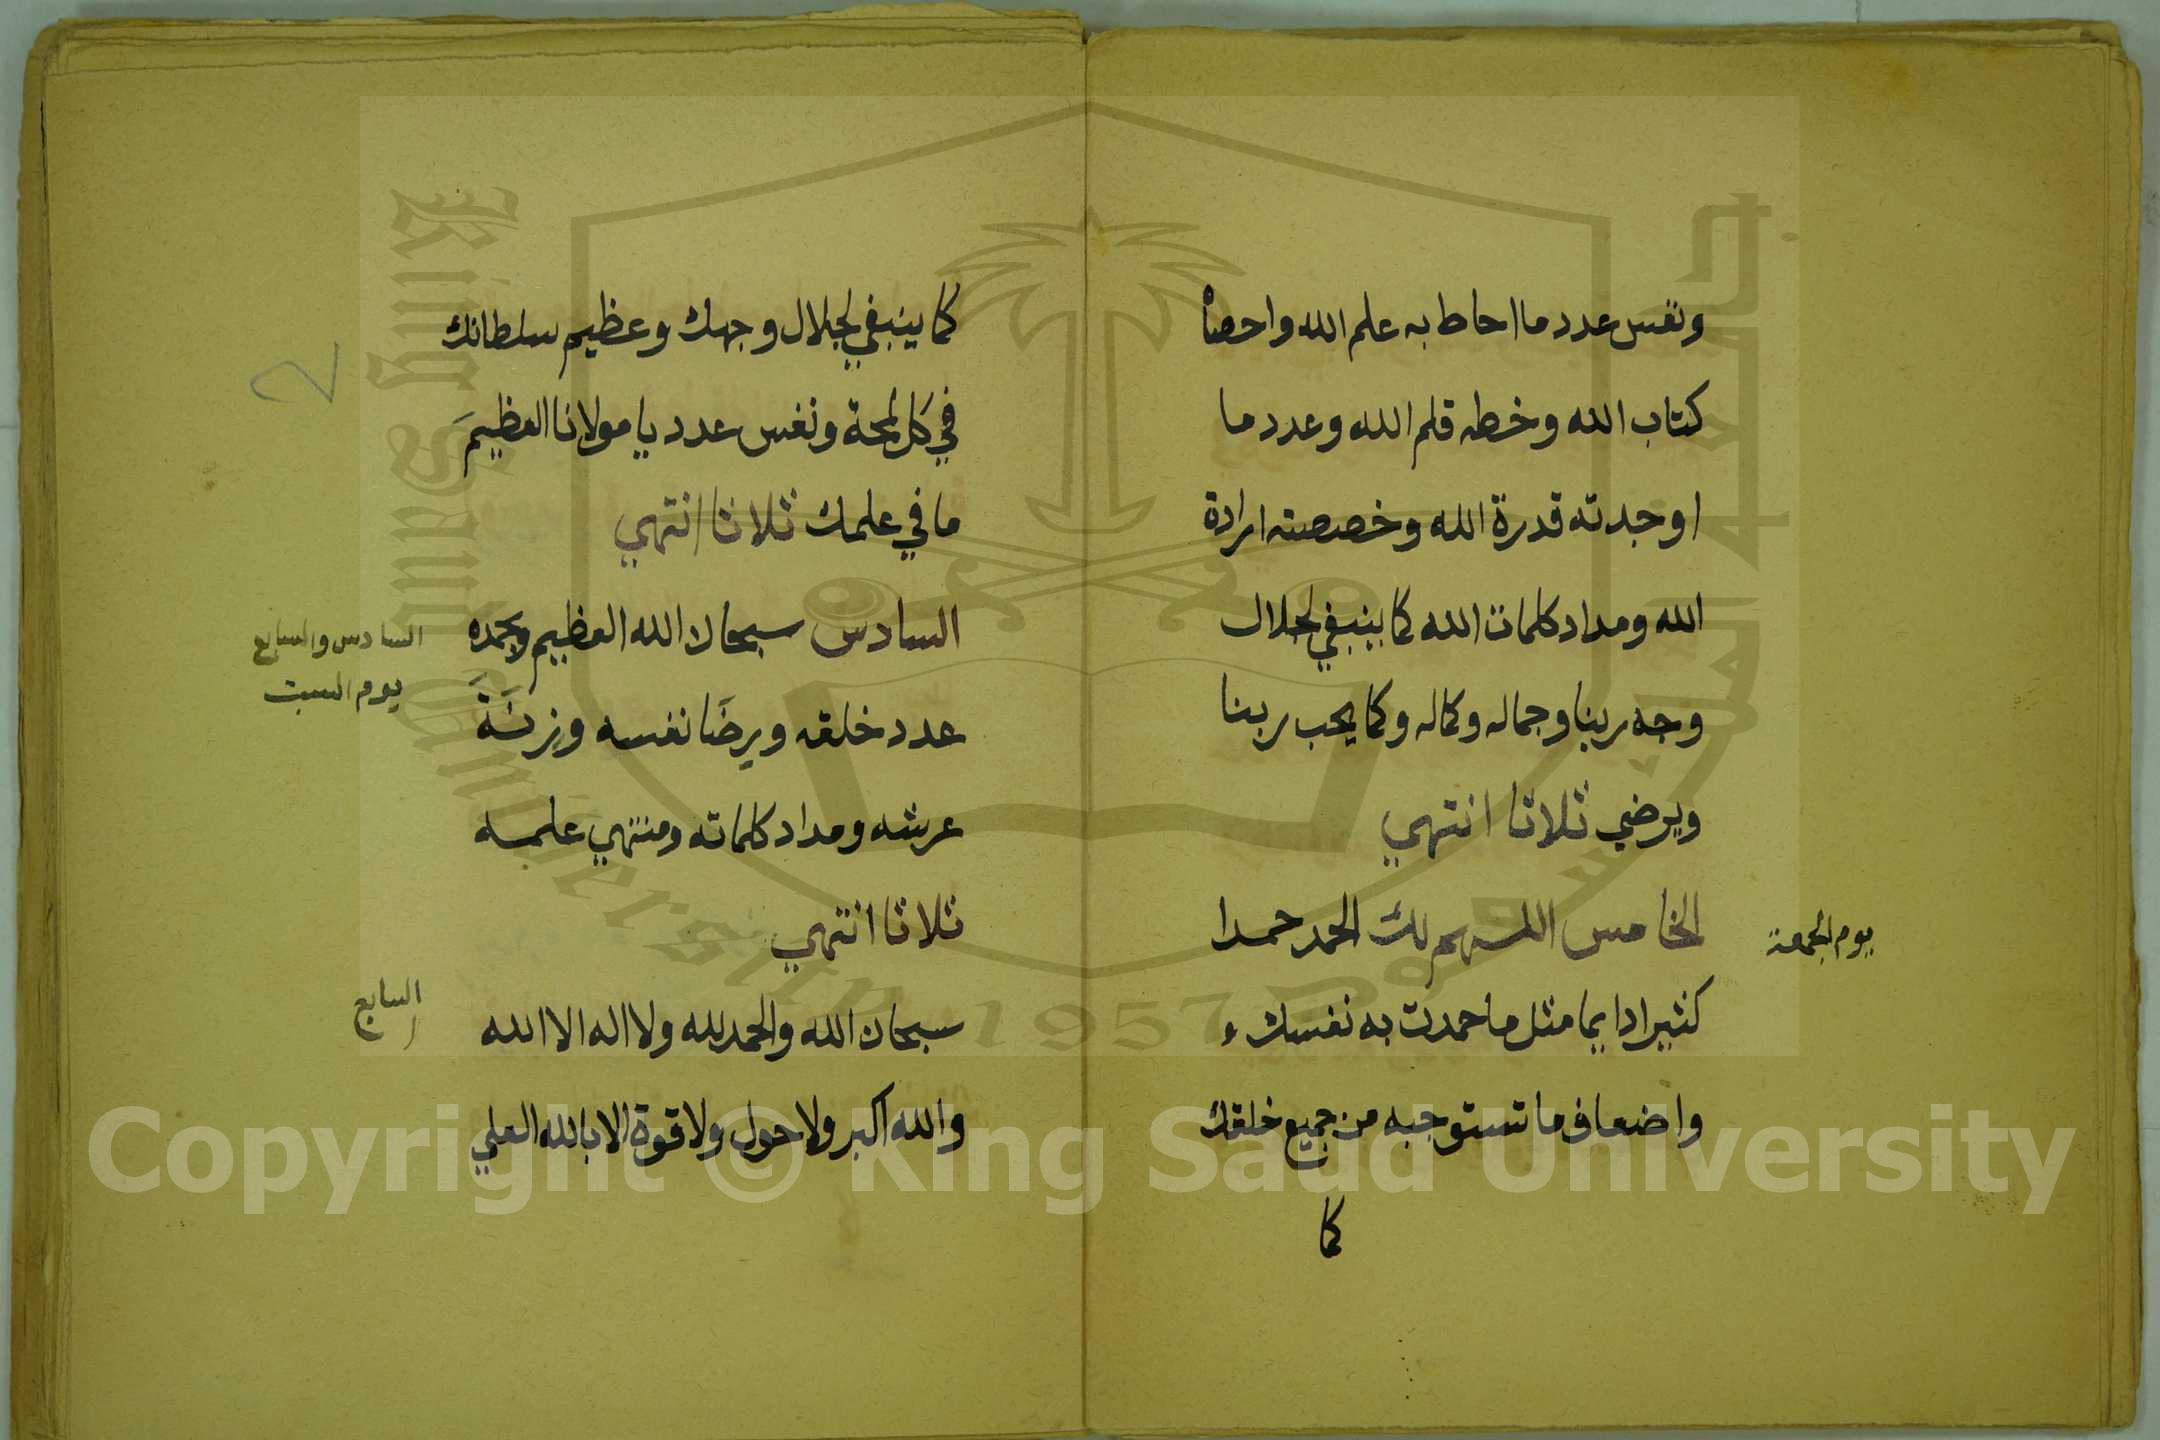 ونفس عدد ما احاط به علم الله واحصاه
كتاب الله وخطه قلم الله وعدد ما
اوجدته قدرة الله وخصصته ارادة
الله ومداد كلمات الله كما ينبغي لجلال
وجه ربنا وجماله وكماله وكما يحب ربنا
ويرضي ثلاثا انتهي
الخامس اللهم لك الحمد حمدا
يوم الجمعة
كثيرا دايما مثل ما حمدت به نفسك
واضعاف ما تستوجبه من جميع خلقك
كما
كما ينبغي لجلال وجهك وعظيم سلطانك
في كل لمحة ونفس عدد يا مولانا العظيم
ما في علمك ثلاثا انتهي
السادس سبحان الله العظيم وبحمده
السادس والسابع
يوم السبت
عدد خلقه ويرضَا نفسه وزنَةَ
عرشه ومداد كلماته ومنتهي علمه
ثلاثا انتهي
السابع
سبحان الله والحمد لله ولا اله الا الله
والله اكبر ولا حول ولا قوة الا بالله العلي
King Saud University
1957
Copyright © King Saud University